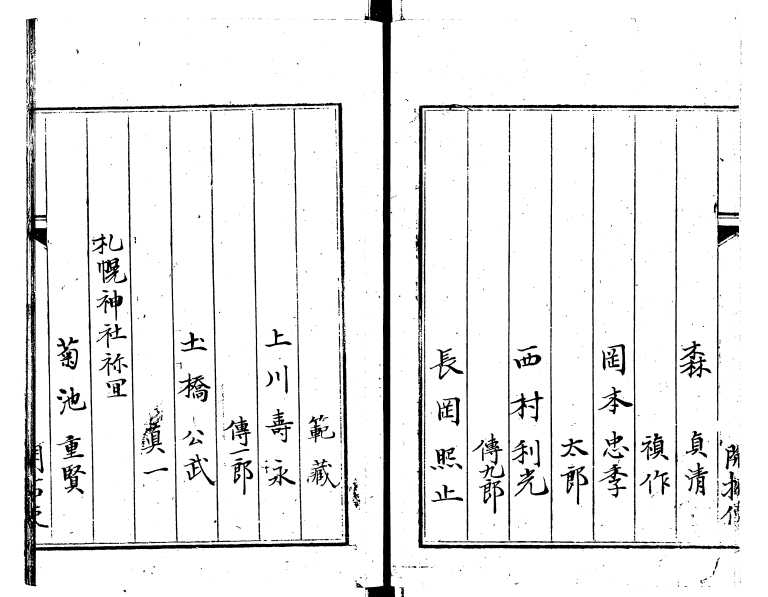 森 貞清
禎作
岡本忠季
太郎
西村利光
傳九郎
長岡照止
範藏
上川寿泳
傳一郎
土橋公武
眞一
札幌神社祢宜
菊池重賢